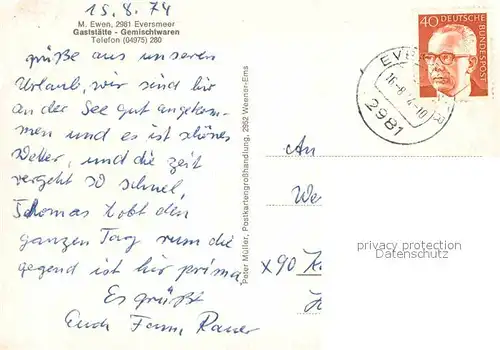 15.8.74
M. Ewen, 2981 Eversmeer
Gaststätte - Gemischwaren
Telefon (04975) 280
grüße aus unseren
Urlaub, wir sind hir
an der See gut angekom-
men und es ist schönes
Wetter, und die zeit
vergeht so schnel,
Thomas tobt den
ganzen Tag rum die
gegend ist hir prima
Es grüßt
Euch Fam.
Peter Müller, Postkartengroßhandlung, 2952 Weener-Ems
40 DEUTSCHE
BUNDESPOST
2981
An
We
x90
privacy protection
Datenschutz